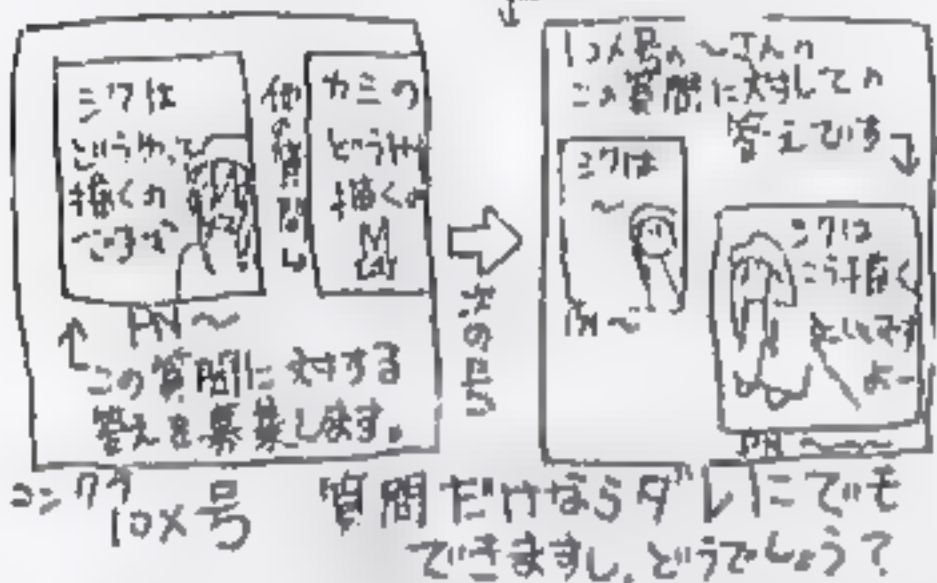 シワは
どうやって
描くの
ですか
PN～
他の質問
カミの
どうやって
描くの
この質問に対する
答えを募集します。
10×号
次の号
10×号の～さんの
この質問に対しての
答えです
シワは
～
PN～
シワは
こう描く
といいです
よー
PN～
質問だけならダレにでも
できますし、どうでしょう？